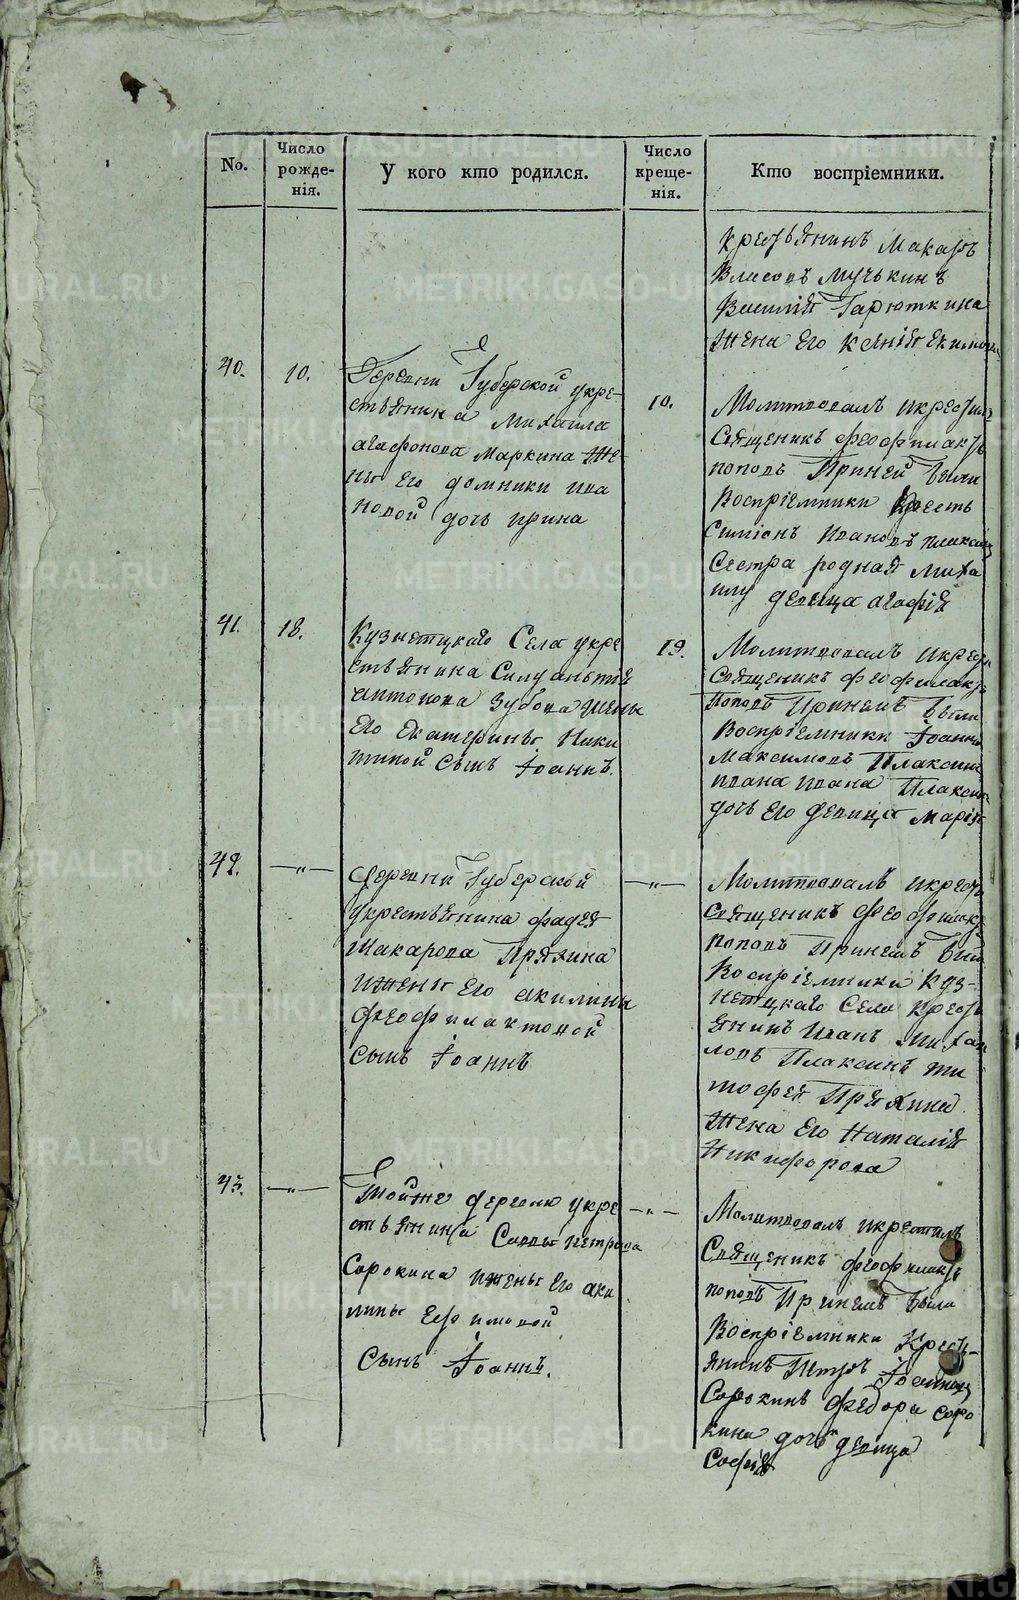 No.
Число рожде-нія.
У кого кто родился.
Число креще-нія.
Кто воспріемники.
Крестьянинъ Макаръ
Власовъ Мучькинъ
Василія Гарюткина
жена Его Ксянія Екимова
40.
10.
Деревни Губерской укре-
стьянина Михаила
агафонова Маркина Же-
ны Его домники ива
новой дочь ирина
10.
Молитвовалъ икрестилъ
Священикъ феофилактъ
поповъ Приней были
Воспріемники Кресть
Симіонъ Ивановъ плаксинъ
Сестра родная Миха
илу девица агафія
41.
18.
Кузнетцкаго Села укре
стьянина Силуантія
антонова Зубова Жены
Его Екатерины Ники
тиной Сынъ Іоаннъ.
19.
Молитвовалъ икрести
Священикъ феофилактъ
поповъ Принемъ были
Воспріемники Іоаннъ
Максимовъ Плаксинъ
ивана ивана Плаксина
дочь Его девица Марія
42.
—"—
Деревни Губерской
укрестьянина фадея
Макарова Пряхина
ижены Его акилины
феофилактовой
сынъ Іоаннъ
—"—
Молитвовалъ икрести
Священикъ феофилактъ
поповъ Принемъ были
Воспріемники Куз-
нетцкаго Села Кресть
янинъ Иванъ Михаи
ловъ Плаксинъ ти
мофея Пряхина
Жена Его Наталія
Никифорова
43.
—"—
Тойже деревни укре
стьянина Саввы петрова
Сорокина ижены Его аки
лины Ефимовой
Сынъ Іоаннъ.
—"—
Молитвовалъ икрестилъ
Священикъ феофилактъ
поповъ Принемъ были
Воспріемники Кресть-
янинъ Петръ Іоанновъ
Сорокинъ федора соро
кина дочь девица
Софія